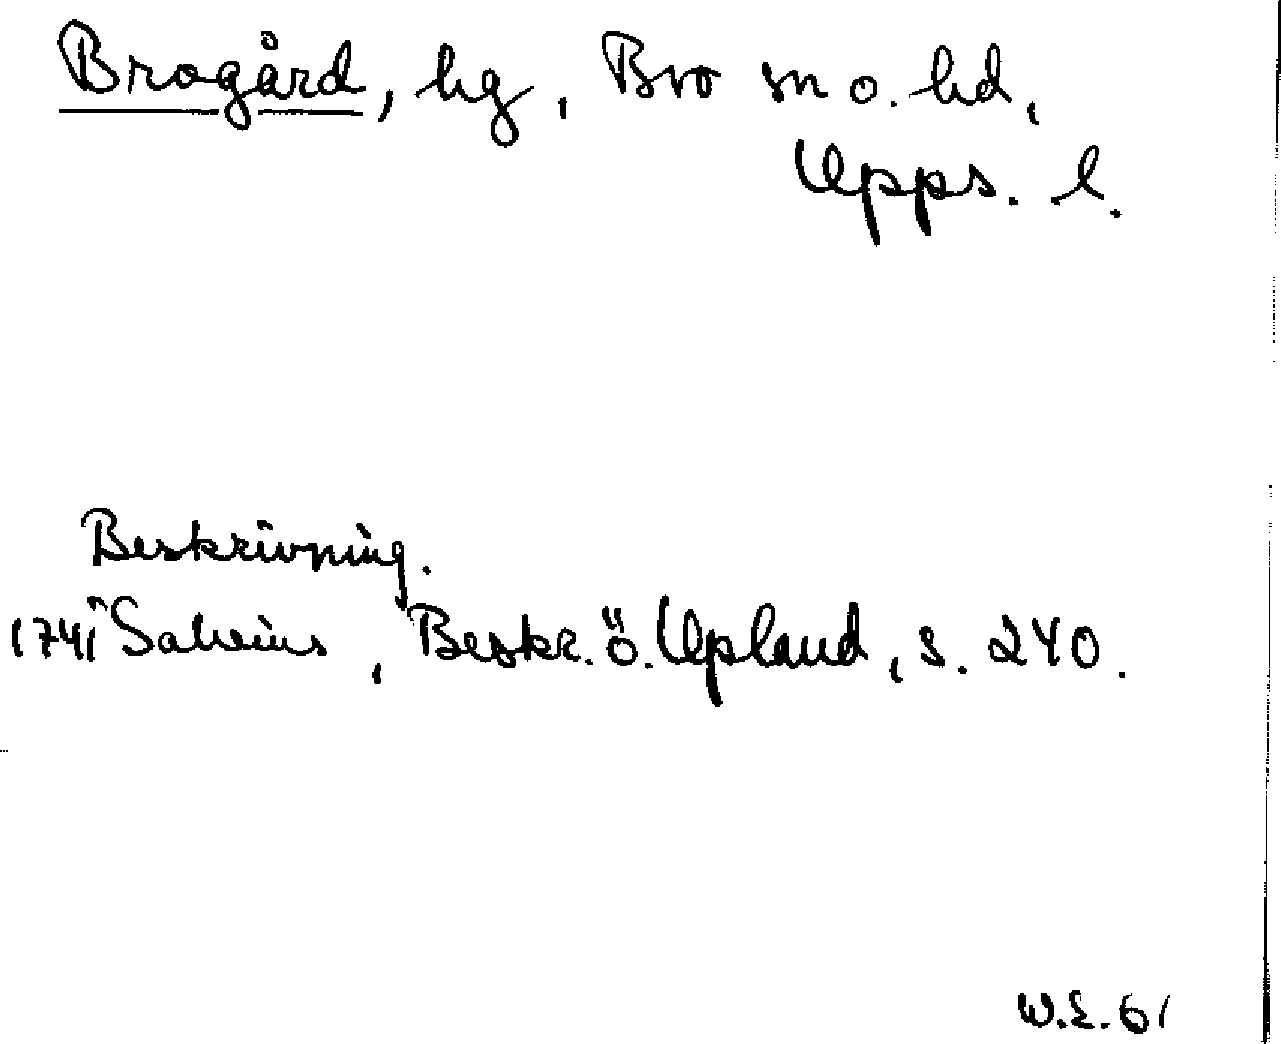 Brogård, hg, Bro sn o. hd,
Upps. l.
Beskrivning.
1741 Salvius, Beskr. ö. Upland, s. 240.
W.E. 61